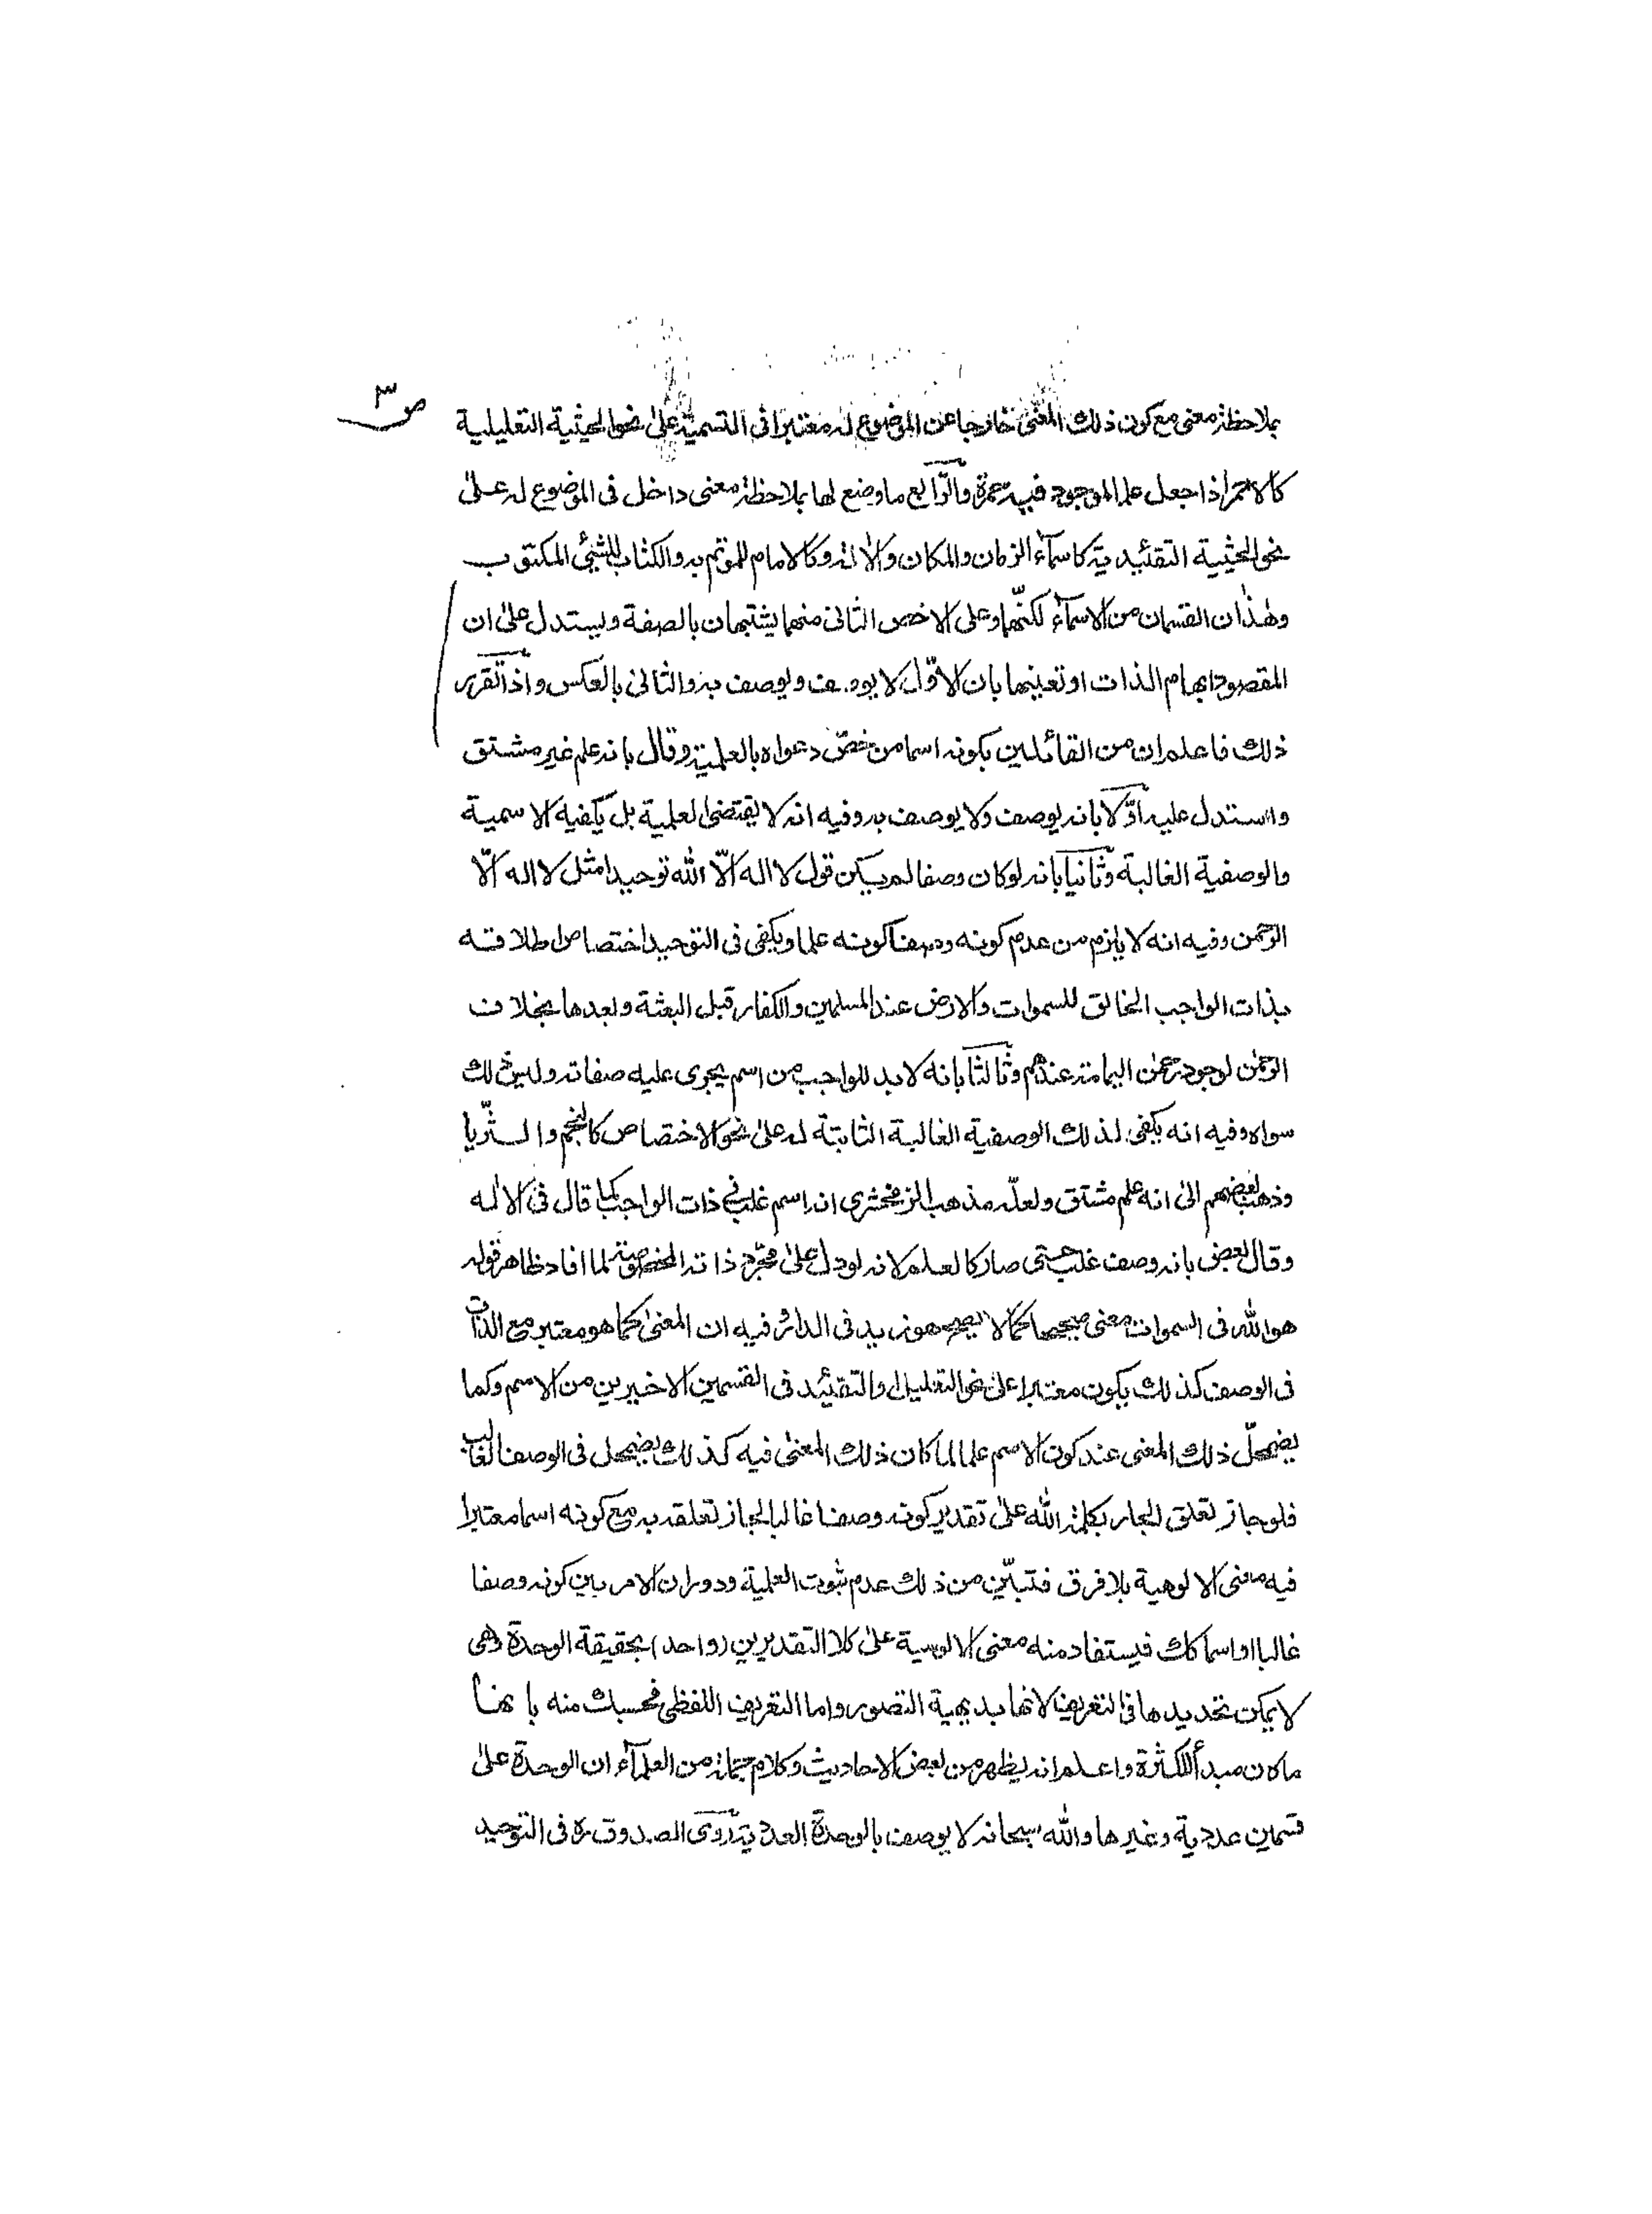 ص ٣
بملاحظة معنى مع كون ذلك المعنى خارجا عن الموضوع له معتبرا فى التسمية على نحو الحيثية التعليلية
كالاحمر اذا جعل علما لموجود فيه حمرة والرّابع ما وضع لها بملاحظة معنى داخل فى الموضوع له على
نحو الحيثية التقئيدية كاسمآء الزمان والمكان والالة وكالامام للمؤتم به والكتاب للشيئ المكتوب
وهٰذان القسمان من الاسمآء لكنّهما وعلى الاخص الثانى منهما يشتبهان بالصفة ويستدل على ان
المقصود ابهام الذات او تعينها بان الاوّل لا يوصف ويوصف به والثانى بالعكس واذا تقرر
ذلك فاعلم ان من القائلين بكونه اسما من خصّ دعواه بالعلمية وقال بانه علم غير مشتق
واستدل عليه اوّلا بانه يوصف ولا يوصف به وفيه انه لا يقتضى العلمية بل يكفيه الاسمية
والوصفية الغالبة وثانيا بانه لو كان وصفا لم يكن قول لا اله الّا اللّٰه توحيدا مثل لا اله الّا
الرحمن وفيه انه لا يلزم من عدم كونه وصفا كونه علما ويكفى فى التوحيد اختصاص اطلاقه
بذات الواجب الخالق للسموات والارض عند المسلمين والكفار قبل البعثة وبعدها بخلاف
الرحمٰن لوجود رحمٰن اليمامة عندهم وثالثا بانه لا بد للواجب من اسم يجرى عليه صفاته وليس ذلك
سواه وفيه انه يكفى لذلك الوصفية الغالبة الثابتة له على نحو الاختصاص كالنجم والثّريا
وذهب بعضهم الى انه علم مشتق ولعلّه مذهب الزمخشرى انه اسم غلب فى ذات الواجب كما قال فى الالٰه
وقال بعض بانه وصف غلب حتى صار كالعلم لانه لو دل على مجرّد ذاته المخصوصة لما افاد ظاهر قوله
هو اللّٰه فى السموات معنى صحيحا كما لا يصح هو زيد فى الدار وفيه ان المعنى كما هو معتبر مع الذات
فى الوصف كذلك يكون معتبرا على نحو التعليل والتقئيد فى القسمين الاخيرين من الاسم وكما
يضمحلّ ذلك المعنى عند كون الاسم علما لما كان ذلك المعنى فيه كذلك يضمحل فى الوصف الغالب
فلو جاز تعلق الجار بكلمة اللّٰه على تقدير كونه وصفا غالبا لجاز تعلقه به مع كونه اسما معتبرا
فيه معنى الالوهية بلا فرق فتبيّن من ذلك عدم ثبوت العلمية ودوران الامر بين كونه وصفا
غالبا او اسما كك فيستفاد منه معنى الالوهية على كلا التقديرين (واحد) بحقيقة الوحدة وهى
لا يمكن تحديدها فى التعريف لانها بديهية التصور واما التعريف اللفظى فحسبك منه بانها
ماه ن مبدأ للكثرة واعلم انه يظهر من بعض الاحاديث وكلام جماعة من العلمآء ان الوحدة على
قسمين عددية وغيرها واللّٰه سبحانه لا يوصف بالوحدة العددية روى الصدوق ره فى التوحيد